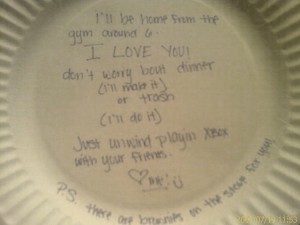 I'll be home from the
gym around 6.
I LOVE YOU!
don't worry bout dinner
(I'll make it)
or trash
(I'll do it)
Just unwind playin Xbox
with your
♡ me! :)
P.S. there are brownies on the stove for you!